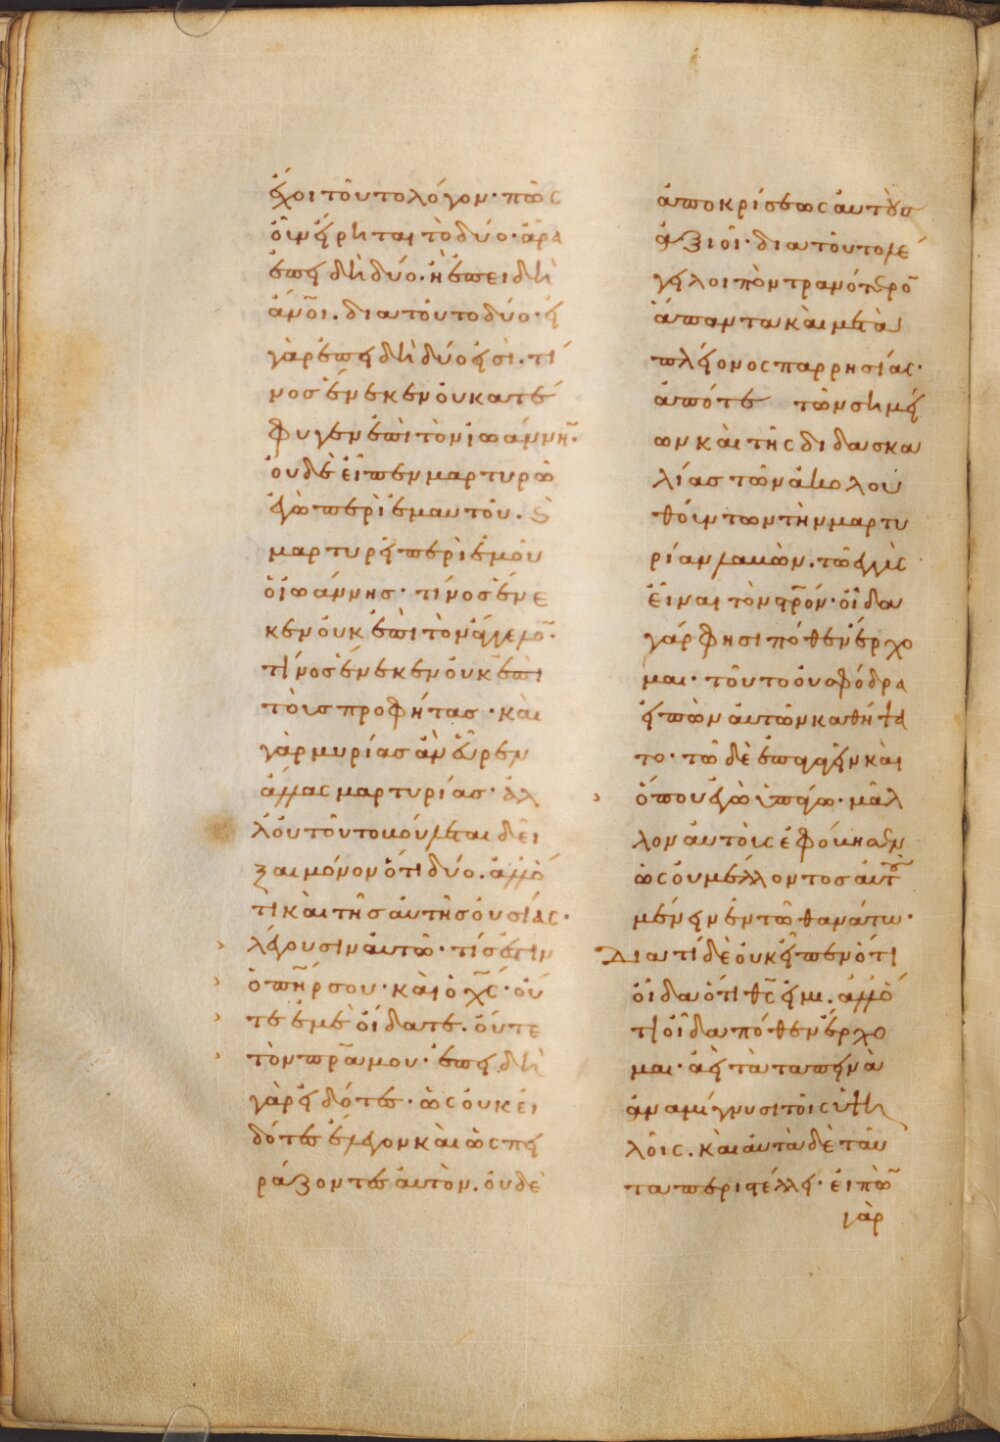 ἔχοι τοῦτο λόγον· πῶς
οἷν εἴρηται τὸ δύο· ἆρα
ἐπειδὴ δύο. ἢ ἐπειδὴ
ἄνο̅ι. διατοῦτο δύο· εἰ
γὰρ ἐπειδὴ δύο εἰσὶ. τί
νοσ ἕνεκεν οὐ κατέ
φυγεν ἐπὶ τὸν ἰωάννη̅·
οὐδὲ εἶπεν μαρτυρῶ
ἐγὼ περὶ ἐμαυτοῦ. ϗ
μαρτυρεῖ περὶ ἐμοῦ
ὁ ἰωάννησ· τίνοσ ἕνε
κεν οὐκ ἐπὶ τὸν ἄγγελο̅·
τίνοσ ἕνεκεν οὐκ ἐπὶ
τοὺσ προφήτασ· καὶ
γὰρ μυρίασ ἂν εὗρεν
ἄλλας μαρτυρίασ· ἀλ
λ' οὐ τοῦτο μόνον βούλεται δεῖ
ξαι μόνον ὅτι δύο. ἀλλ' ὅ
τι καὶ τῆσ αὐτῆσ οὐσίας·
λέγουσιν αὐτῶ· τίσ ἐστιν
ὁ πη̅ρ σου· καὶ ὁ χ̅ς· οὔ
τε ἐμὲ οἴδατε. οὔτε
τὸν πρ̅α μου· ἐπειδὴ
γὰρ εἰδότες· ὡς οὐκ εἰ
δότες ἔλεγον καὶ ὡς πει
ράζοντες αὐτὸν. οὐδὲ
ἀποκρίσεως αὐτοὺσ
ἀξιοῖ· διατοῦτο λέ
γει λοιπὸν τρανότερο̅
ἅπαντα καὶ μετὰ
πλείονος παρρησίας·
ἀπό τε τῶν σημεί
ων καὶ τῆς διδασκα
λίασ τῶν ἀκολου
θούντων τὴν μαρτυ
ρίαν λαμβὼν. τῶ ἐγγὺς
εἶναι τὸν στ̅ρόν· οἶδα
γάρ φησι πόθεν ἔρχο
μαι· τοῦτο οὐ σφόδρα
εἰπὼν αὐτῶν καθήψα
το· τῶ δὲ ἐπαγαγεῖν καὶ
ὅπου ἐγὼ ὑπάγω· μᾶλ
λον αὐτοὺς ἐφόβησεν
ὡς οὐ μέλλοντοσ αὐτοῦ
μένειν ἐν τῶ θανάτω·
Διατί δὲ οὐκ εἶπεν ὅτι
οἶδα ὅτι θ̅ς εἰμι. ἀλλ' ὅ
τι οἶδα πόθεν ἔρχο
μαι· ἀεὶ τὰ ταπεινὰ
ἀναμίγνυσι τοῖς ὑψη
λοῖς. καὶ αὐτὰ δὲ ταῦ
τα περιστέλλει· εἰπὼ̅
γὰρ